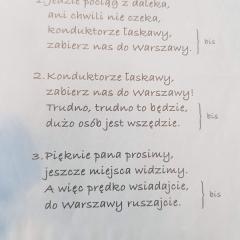 1. Jedzie pociąg z daleka,
ani chwili nie czeka,
konduktorze łaskawy,
zabierz nas do Warszawy.
bis
2. Konduktorze łaskawy,
zabierz nas do Warszawy!
Trudno, trudno to będzie,
dużo osób jest wszędzie.
bis
3. Pięknie pana prosimy,
jeszcze miejsca widzimy.
A więc prędko wsiadajcie,
do Warszawy ruszajcie.
bis